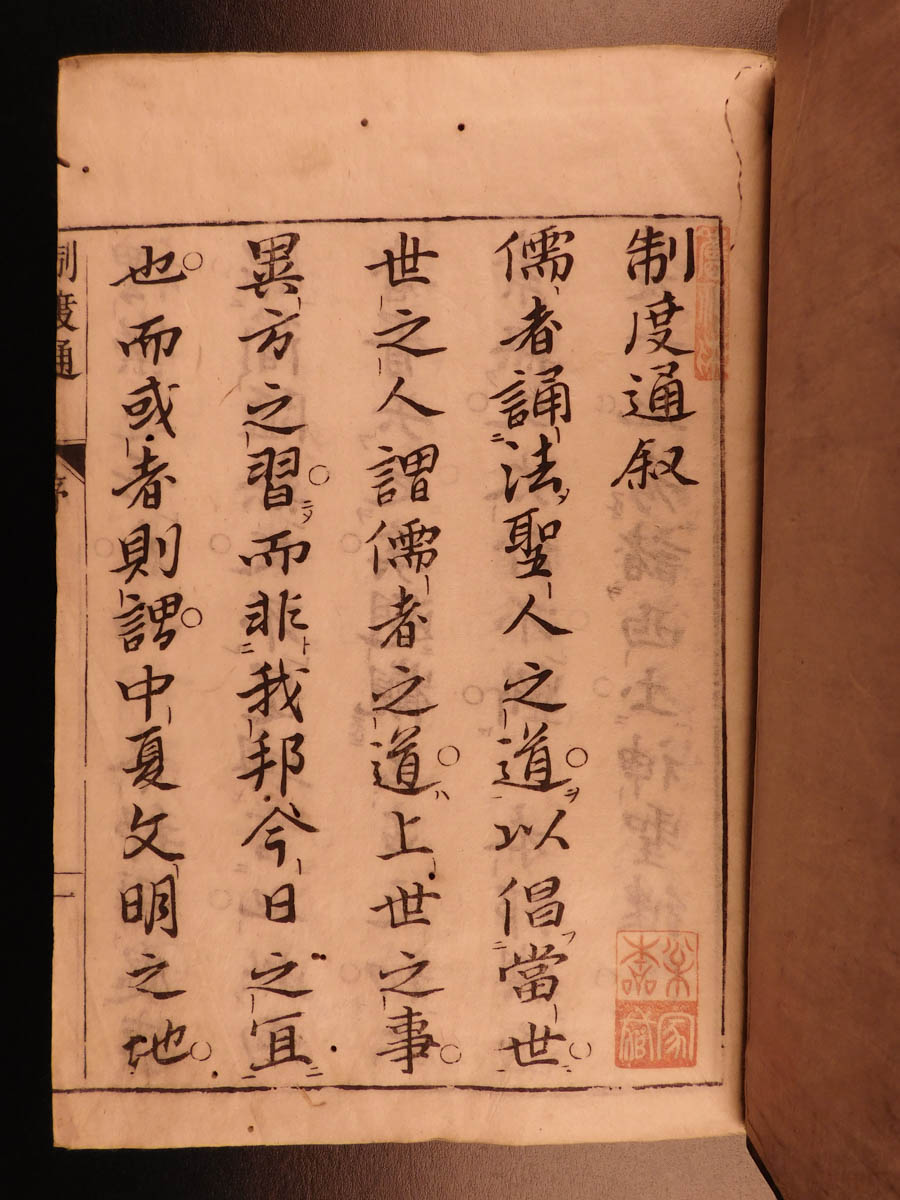 制度通叙
儒者誦法聖人之道以倡當世
世之人謂儒者之道上世之事
異方之習而非我邦今日之宜
也而或者則謂中夏文明之地
制度通
序
一